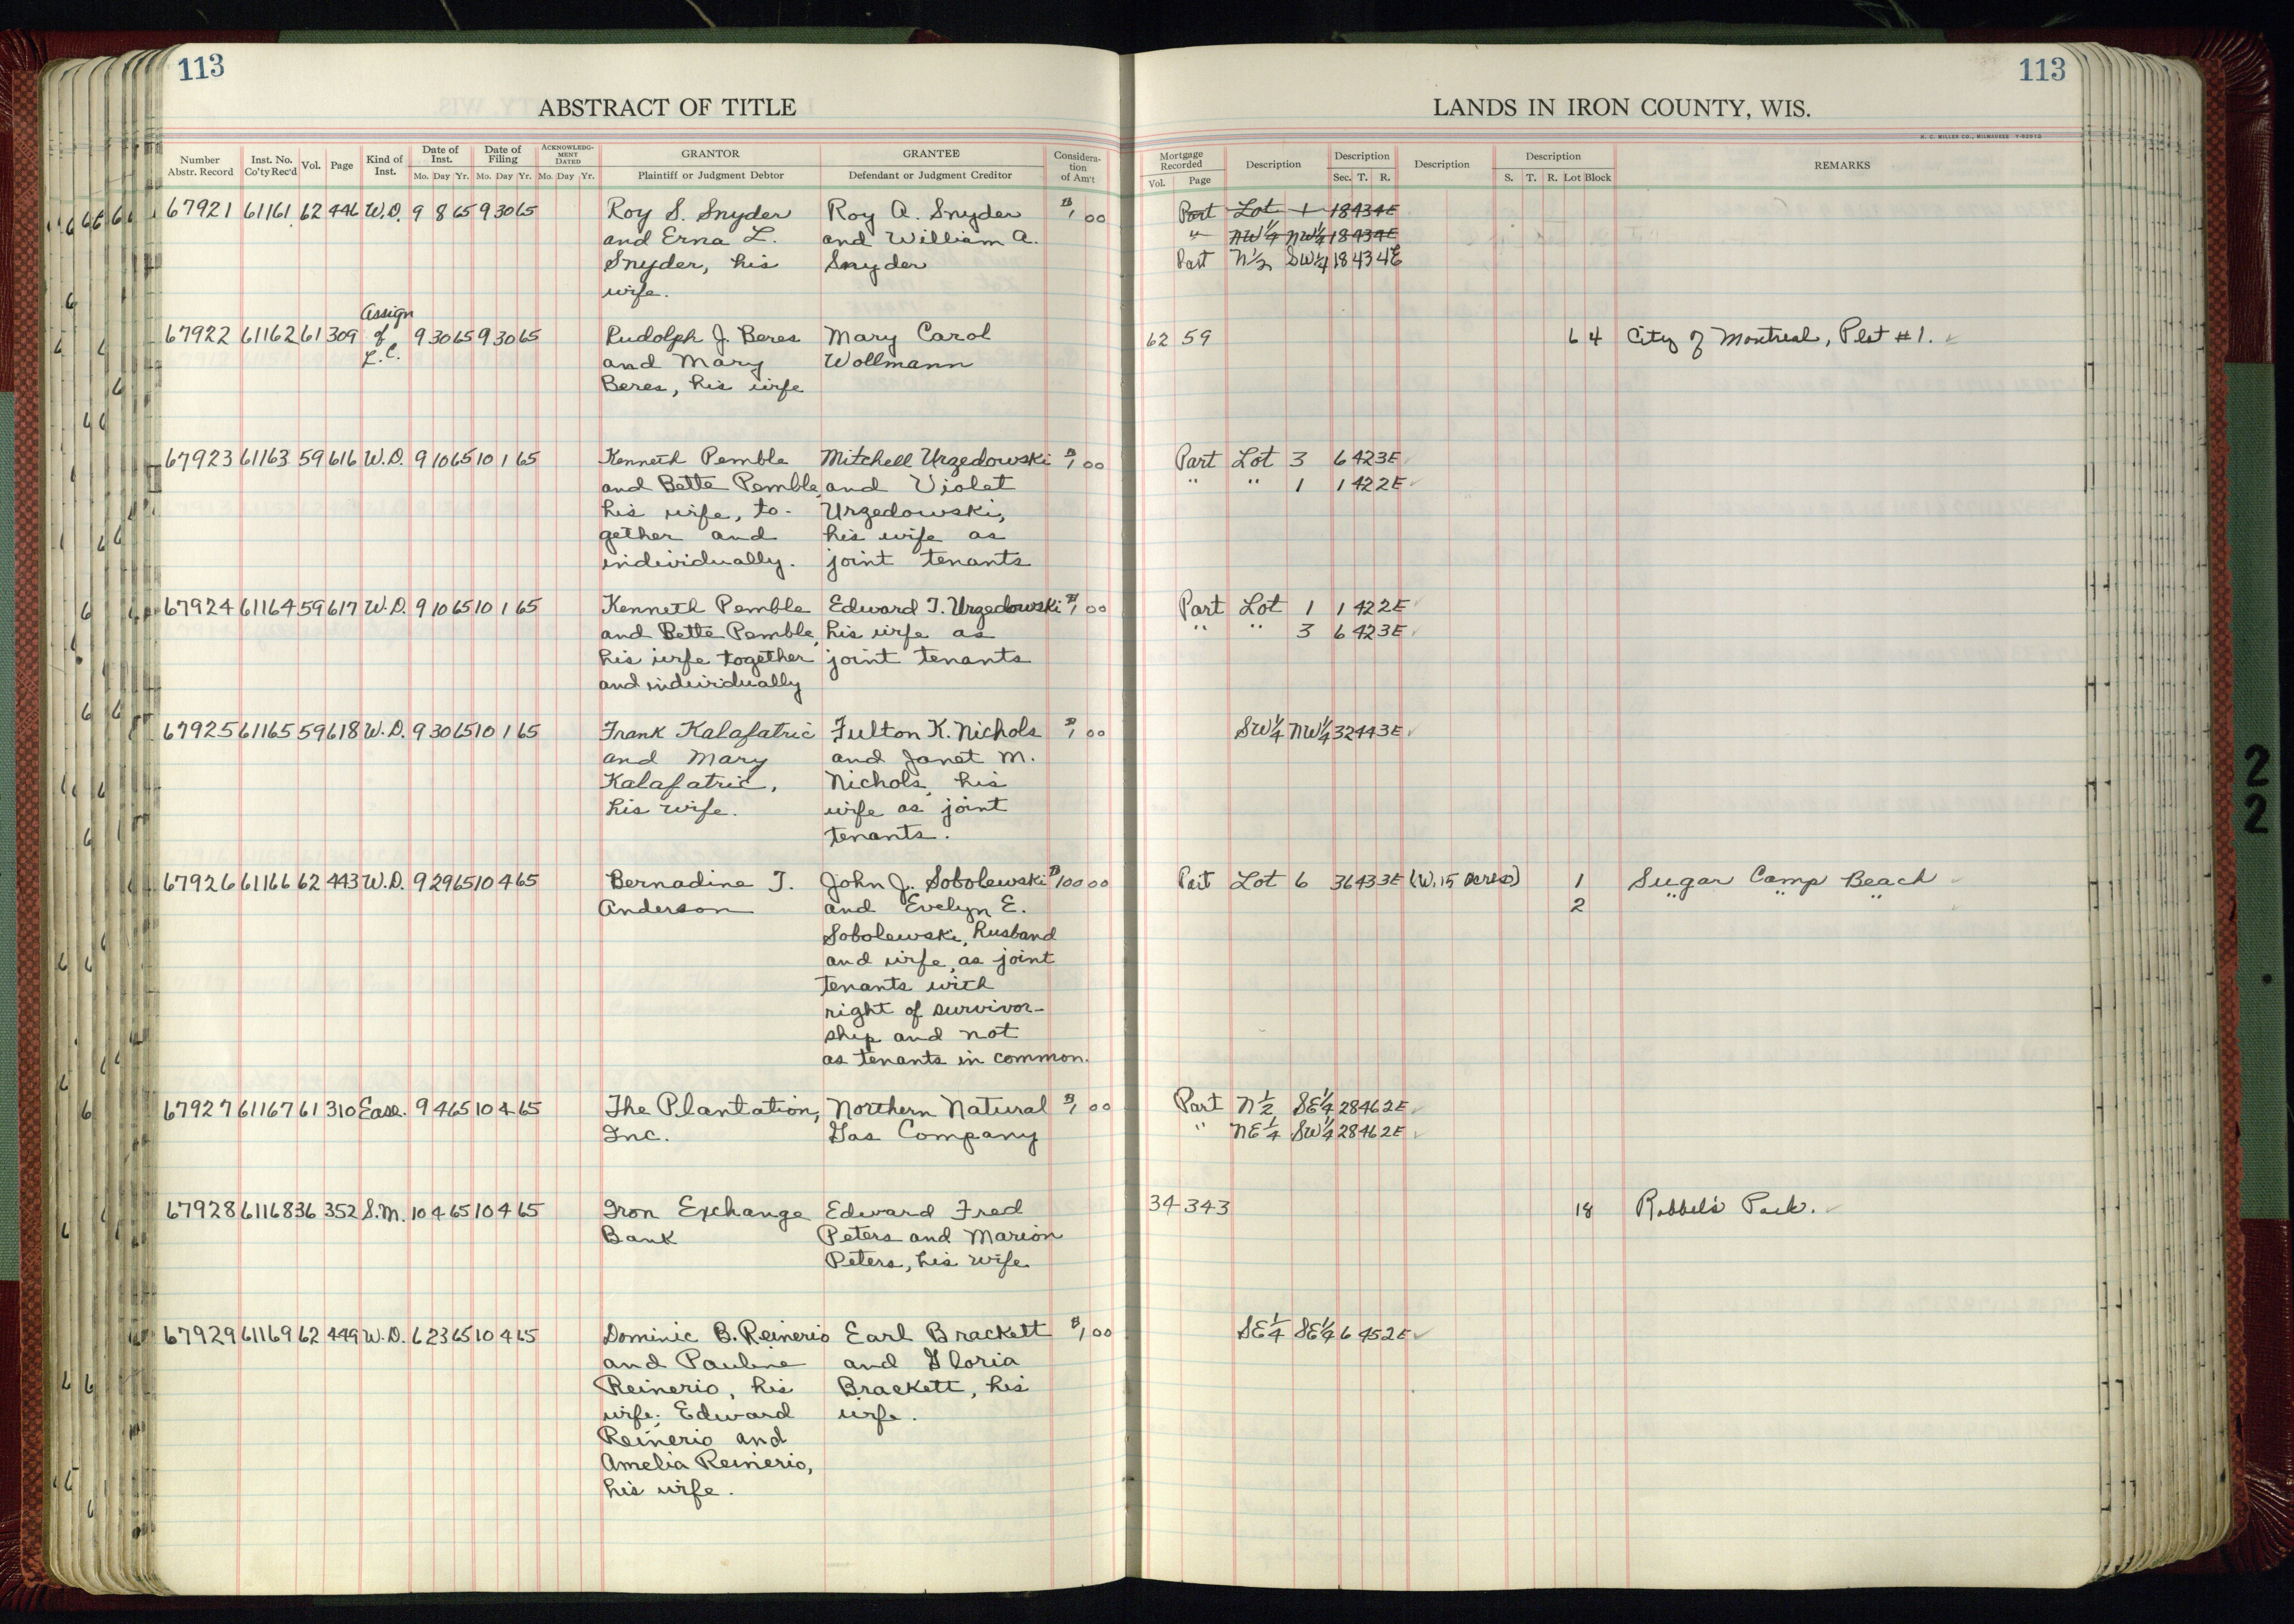 113
113
ABSTRACT OF TITLE
LANDS IN IRON COUNTY, WIS.
H. C. MILLER CO., MILWAUKEE
Number Abstr. Record Inst. No. Co'ty Rec'd Vol. Page Kind of Inst. Date of Inst. Mo. Day Yr. Date of Filing Mo. Day Yr. ACKNOWLEDG-MENT DATED Mo. Day Yr. GRANTOR Plaintiff or Judgment Debtor GRANTEE Defendant or Judgment Creditor Considera-tion of Am't
Mortgage Recorded Vol. Page Description Description Sec. T. R. Description Description S. T. R. Lot Block REMARKS
67921 61161 62 446 W.D. 9 8 65 9 30 65 Roy S. Snyder Roy A. Snyder $1 00 Part Lot 1 18 43 4E
and Erna L. and William A. " NW1/4 NW1/4 18 43 4E
Snyder, his Snyder Part N1/2 SW1/4 18 43 4E
wife.
Assign
67922 61162 61 309 of 9 30 65 9 30 65 Rudolph J. Beres Mary Carol 62 59 6 4 City of Montreal, Plat #1.
L.C. and Mary Wollmann
Beres, his wife
67923 61163 59 616 W.D. 9 10 65 10 1 65 Kenneth Pemble Mitchell Urzedowski $1 00 Part Lot 3 6 42 3E
and Bette Pemble, and Violet " " 1 1 42 2E
his wife, to- Urzedowski,
gether and his wife as
individually. joint tenants
67924 61164 59 617 W.D. 9 10 65 10 1 65 Kenneth Pemble Edward T. Urzedowski $1 00 Part Lot 1 1 42 2E
and Bette Pemble, his wife as " " 3 6 42 3E
his wife together joint tenants
and individually
67925 61165 59 618 W.D. 9 30 65 10 1 65 Frank Kalafatric Fulton K. Nichols $1 00 SW1/4 NW1/4 32 44 3E
and Mary and Janet M.
Kalafatric, Nichols, his
his wife. wife as joint
tenants.
67926 61166 62 443 W.D. 9 29 65 10 4 65 Bernadine T. John J. Sobolewski $100 00 Part Lot 6 36 43 3E (W. 15 acres) 1 Sugar Camp Beach
Anderson and Evelyn E. 2 " " "
Sobolewski, husband
and wife, as joint
tenants with
right of survivor-
ship and not
as tenants in common.
67927 61167 61 310 Ease. 9 4 65 10 4 65 The Plantation, Northern Natural $1 00 Part N1/2 SE1/4 28 46 2E
Inc. Gas Company " NE1/4 SW1/4 28 46 2E
67928 61168 36 352 S.M. 10 4 65 10 4 65 Iron Exchange Edward Fred 34 343 18 Park.
Bank Peters and Marion
Peters, his wife
67929 61169 62 449 W.D. 6 23 65 10 4 65 Dominic B. Reinerio Earl Brackett $1 00 SE1/4 SE1/4 6 45 2E
and Pauline and Gloria
Reinerio, his Brackett, his
wife; Edward wife.
Reinerio and
Amelia Reinerio,
his wife.
2
2